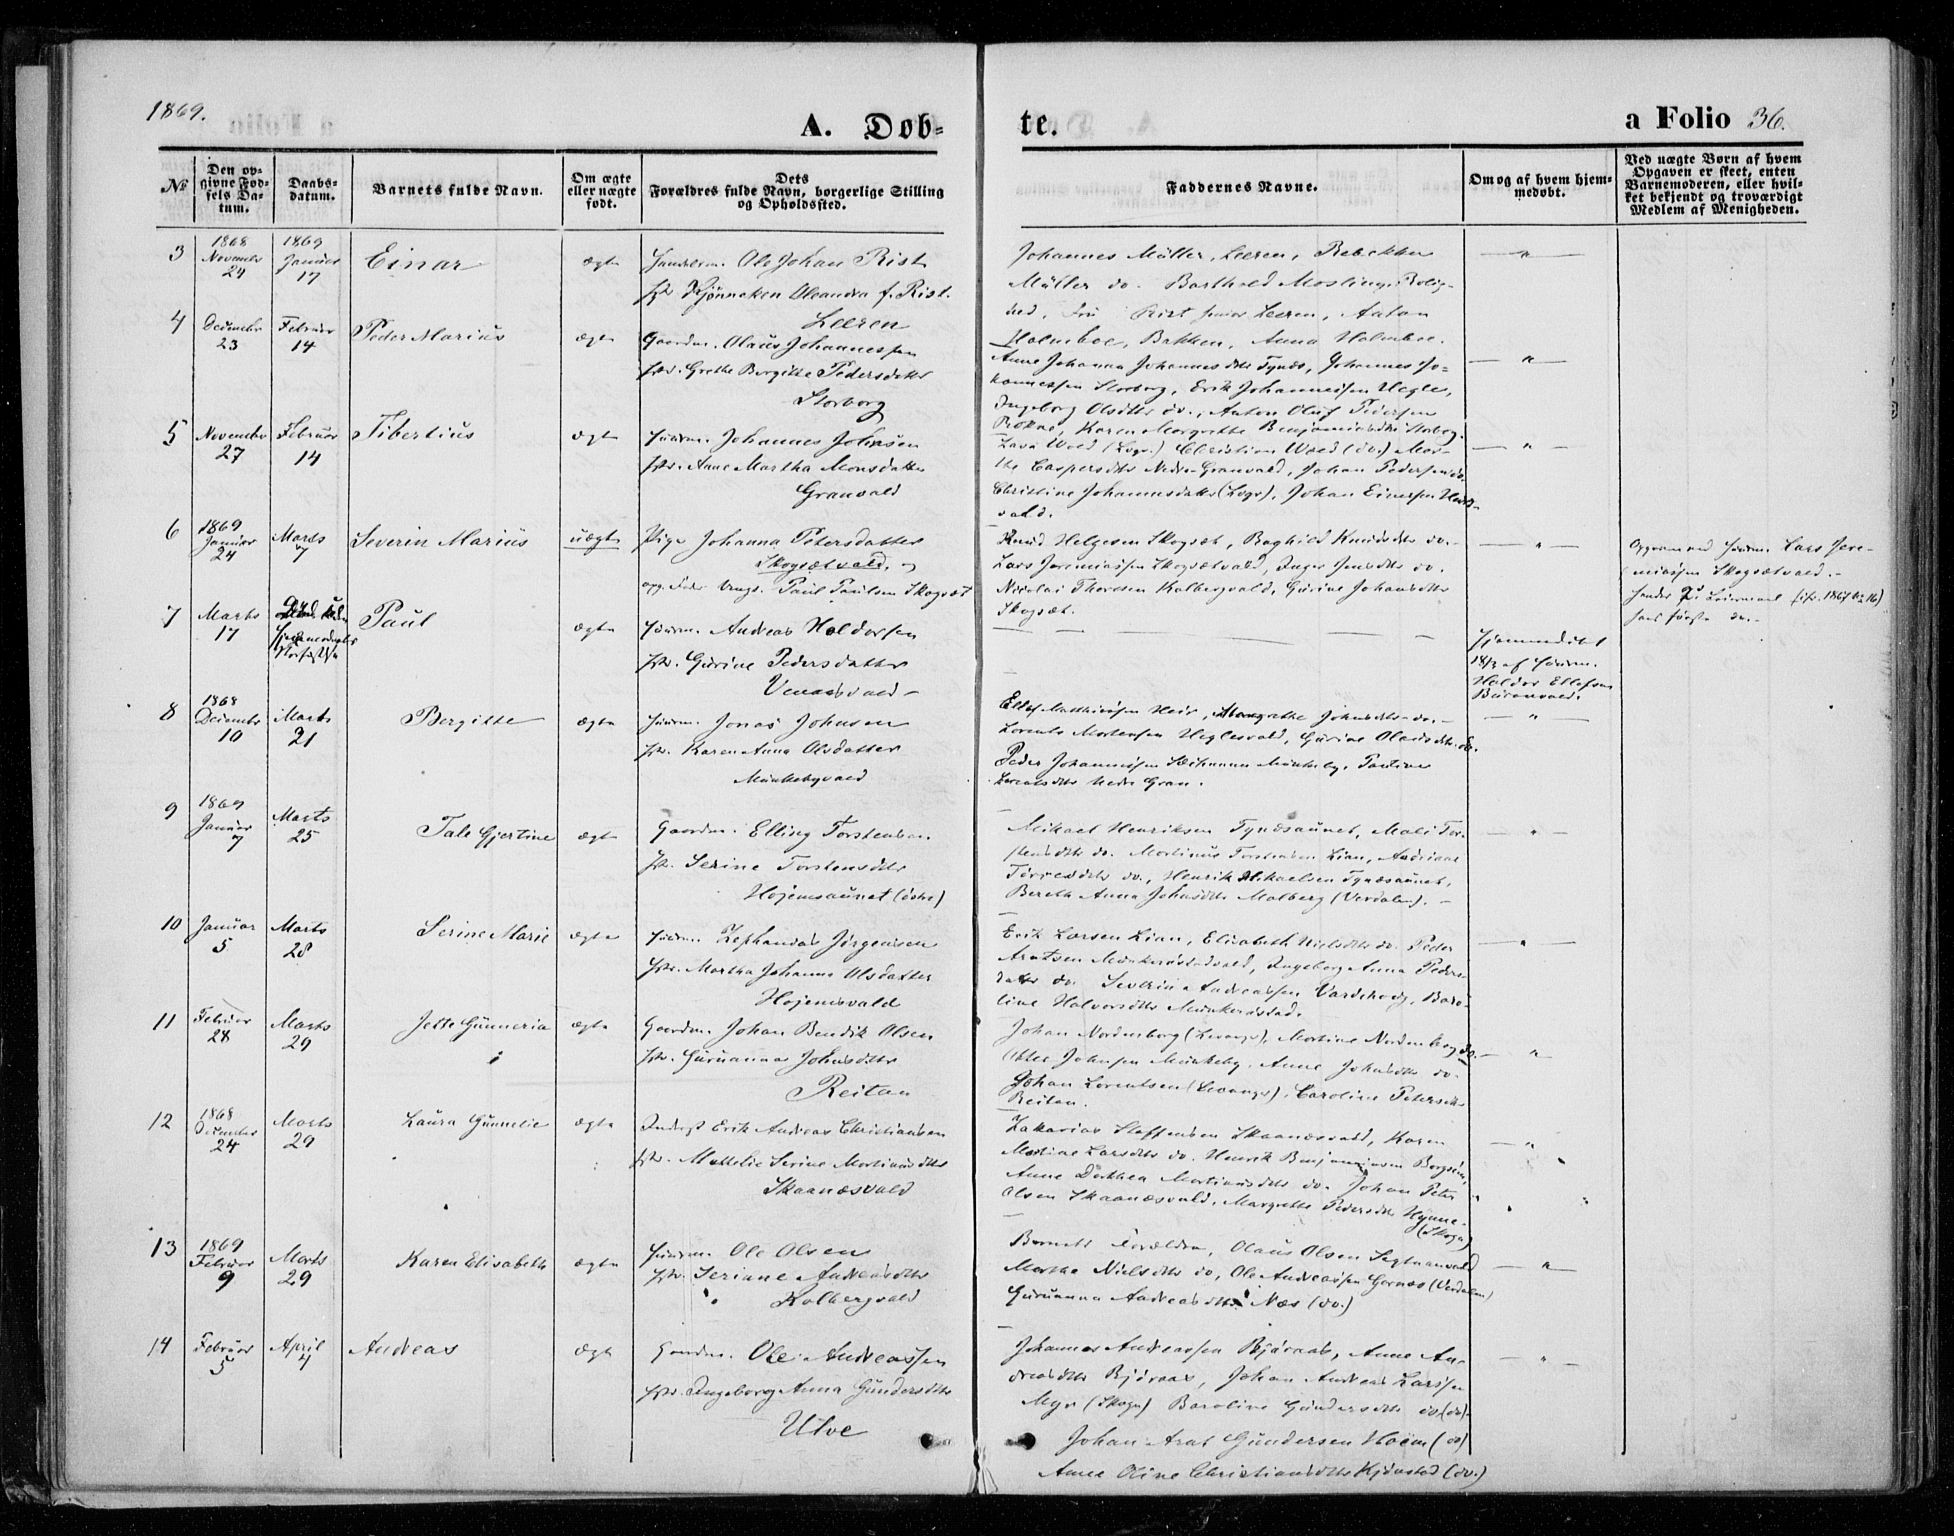 1869.
A. Døb-
te.
a Folio 36.
№
Den op-
givne Fød-
sels Da-
tum.
Daabs-
datum.
Barnets fulde Navn.
Om ægte
eller uægte
født.
Dets
Forældres fulde Navn, borgerlige Stilling
og Opholdssted.
Faddernes Navne.
Om og af hvem hjem-
medøbt.
Ved uægte Børn af hvem
Opgaven er skeet, enten
Barnemoderen, eller hvil-
ket bekjendt og troværdigt
Medlem af Menigheden.
3
1868
November
24
1869
Januar
17
Einar
ægte
Ole Johan Rist
Oleandra f. Rist.
Leeren
Johannes Müller, Leeren, Rebekka
Müller do. Barthold Moslings Rolig-
hed, Fru Rist senior Leeren, Anton
Holmboe, Bakken, Anna Holmboe.
— " —
4
Decembr
23
Februar
14
Peder Marius
ægte
Gaardm. Olaus Johannessen
Hst. Grethe Bergitte Pedersdatter
Storborg
Anne Johanna Johannesdtr Tynes, Johannes Jo-
hannessen Storborg, Erik Johannessen Hegle,
Ingeborg Olsdtr do., Anton Oluf Pedersen
Karen Margrethe Benjaminsdtr Storborg.
— " —
5
November
27
Februar
14
Tibertius
ægte
Husm. Johannes Johnsen
Hst. Anne Martha Monsdatter
Granvald
Christian Woed (do.) Mar-
the Caspersdtr Nedre Granvald, Johan Pedersen do.
Christine Johannesdatter (Levgr), Johan Einersen
vald.
— " —
6
1869
Januar
24
Marts
7
Severin Marius
uægte
Pige Johanna Petersdatter
Skogsætvald, og
opg. Fader Ungk. Paul Paulsen Skogsæt
Knud Helgesen Skogsæt, Raghild Knudsdtr do.-
Lars Jeremiassen Skogsætvald, Inger Jensdtr do.
Nicolai Thoresen Kolbergvald, Gurine Johansdtr
Skogsæt.
— " —
Opgaven ved Husm. Lars Jere-
miassen Skogsætvald.-
hendes 2det Leiermaal (cfr. 1867 No 16)
hans første do.-
7
Marts
17
Paul
ægte
Husm. Andreas Haldorsen
Hst. Gurine Pedersdatter
Hjemmedøbt
18/3 af Husm.
Haldor Ellefsen
8
1868
Decembr
10
Marts
21
Bergitte
ægte
Husm. Jonas Johnsen
Hst. Karen Anna Olsdatter
Munkebyvald
Ellef Matthiassen Heir, Margrethe Johnsdtr do.-
Lorents Mortensen Heglesvald, Gurine Olausdtr do.
Peder Johannessen Munkeby,
Lorentsdtr Nedre Gran.
— " —
9
1869
Januar
7
Marts
25
Tale Gjertine
ægte
Gaardm. Elling Torstensen
Hst. Serine Torstensdtr
Hojemsaunet (østre)
Mikael Henriksen Tynæsaunet, Mali Tor-
stensdtr do. Martinus Torstensen Lian, Andriane
Torresdtr do., Henrik Mikaelsen Tynæsaunet,
Bereth Anna Johasdtr Molberg (Verdalen). -
— " —
10
Januar
5
Marts
28
Serine Marie
ægte
Husm. Zephanias Jørgensen
Hst. Martha Johanna Olsdatter
Hojemsvald
Erik Larsen Lian, Elisabeth Nielsdtr do. Peder
Arntsen Munkerøstadvald, Ingeborg Anna Peders-
datter do. Severin Andreassen Vardehoug, Baro-
line Halvorsdtr Munkerøstad.
— " —
11
Februar
28
Marts
29
Jette Gunneria
ægte
Gaardm. Johan Bendik Olsen
Hst. Guruanna Johnsdtr
Reitan
Johan Nordenborg (Levanger), Martine Nordenborg do.
Johnsen Munkeby, Anne Johnsdtr do.
Johan Lorentsen (Levanger), Caroline Petersdtr
Reitan.
— " —
12
1868
December
24
Marts
29
Laura Gunnelie
ægte
Inderst Erik Andreas Christiansen
Hst. Mettelie Serine Martinusdtr
Skaanæsvald
Zakarias Steffensen Skaanæsvald, Karen
Martine Larsdtr do. Henrik Benjaminsen Borgsin,
Anne Dorthea Martinusdtr do. Johan Peter
Olsen Skaanæsvald, Margrethe Pedersdtr Hynne-
(Skogn)
— " —
13
1869
Februar
9
Marts
29
Karen Elisabeth
ægte
Husm. Ole Olsen
Hst. Seriane Andreasdtr
Kolbergvald
Barnets Forældre, Olaus Olsen Segtnanvald
Marthe Nielsdtr do, Ole Andreassen Gernæs (Verdalen)
Guruanna Andreasdtr Næs (do.)
— " —
14
Februar
5
April
4
Andreas
ægte
Gaardm. Ole Andreassen
Hst. Ingeborg Anna Gundersdtr
Ulve
Johannes Andreassen Bjøraas, Anne An-
dreasdtr Bjøraas, Johan Andreas Larssen
Myr (Skogn) Baroline Gundersdtr do (do)-
Johan Arnt Gundersen Hoem (do)
Anne Oline Christiansdtr Kjønstad (do.)
— " —